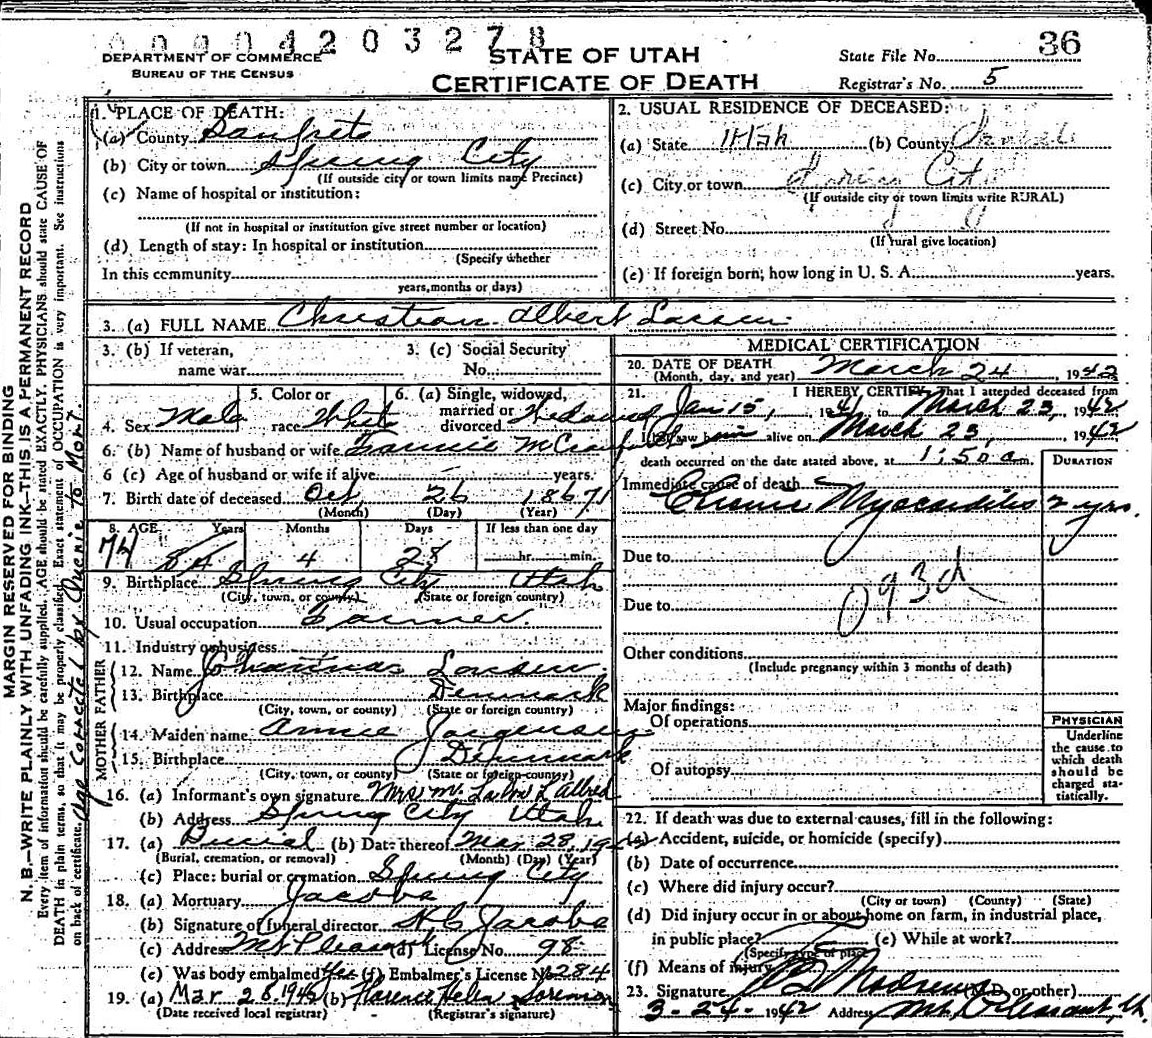 0 0 9 0 4 2 0 3 2 7 8
DEPARTMENT OF COMMERCE
BUREAU OF THE CENSUS
STATE OF UTAH
CERTIFICATE OF DEATH
State File No. 36
Registrar's No. 5
MARGIN RESERVED FOR BINDING
N. B.—WRITE PLAINLY WITH UNFADING INK—THIS IS A PERMANENT RECORD
Every item of information should be carefully supplied. AGE should be stated EXACTLY. PHYSICIANS should state CAUSE OF
DEATH in plain terms, so that it may be properly classified. Exact statement of OCCUPATION is very important. See instructions
on back of certificate.
1. PLACE OF DEATH:
(a) County Sanpete
(b) City or town Spring City
(If outside city or town limits name Precinct)
(c) Name of hospital or institution:
(If not in hospital or institution give street number or location)
(d) Length of stay: In hospital or institution
(Specify whether
In this community
years, months or days)
2. USUAL RESIDENCE OF DECEASED:
(a) State Utah (b) County
(c) City or town Spring City
(If outside city or town limits write RURAL)
(d) Street No.
(If rural give location)
(e) If foreign born, how long in U. S. A. years.
3. (a) FULL NAME Christian Albert Larsen
3. (b) If veteran,
name war
3. (c) Social Security
No.
4. Sex Male
5. Color or
race White
6. (a) Single, widowed,
married or
divorced Widowed
6. (b) Name of husband or wife Fannie
6 (c) Age of husband or wife if alive — years.
7. Birth date of deceased Oct 26 1867
(Month) (Day) (Year)
8. AGE Years Months Days If less than one day
74 84 4 28 hr. min.
9. Birthplace Spring City Utah
(City, town, or county) (State or foreign country)
10. Usual occupation Farmer
11. Industry or business
FATHER
12. Name Johannas Larsen
13. Birthplace Denmark
(City, town, or county) (State or foreign country)
MOTHER
14. Maiden name Annie Jorgensen
15. Birthplace Denmark
(City, town, or county) (State or foreign country)
16. (a) Informant's own signature Mrs. Allred
(b) Address Spring City Utah
17. (a) Burial (b) Date thereof Mar 28, 1942
(Burial, cremation, or removal) (Month) (Day) (Year)
(c) Place: burial or cremation Spring City
18. (a) Mortuary Jacobs
(b) Signature of funeral director H C Jacobs
(c) Address Mt Pleasant (d) License No. 98
(e) Was body embalmed Yes (f) Embalmer's License No. 284
19. (a) Mar 28. 1942 (b) Florence Helen Sorenson
(Date received local registrar) (Registrar's signature)
MEDICAL CERTIFICATION
20. DATE OF DEATH
(Month, day, and year) March 24, 1942
21. I HEREBY CERTIFY, That I attended deceased from
Jan 15, 1941 to March 23, 1942
I last saw him alive on March 23, 1942
death occurred on the date stated above, at 1:50 a m.
DURATION
Immediate cause of death
Chronic Myocarditis 2 yrs.
Due to
093d
Due to
Other conditions
(Include pregnancy within 3 months of death)
Major findings:
Of operations
Of autopsy
PHYSICIAN
Underline
the cause to
which death
should be
charged sta-
tistically.
22. If death was due to external causes, fill in the following:
(a) Accident, suicide, or homicide (specify)
(b) Date of occurrence
(c) Where did injury occur?
(City or town) (County) (State)
(d) Did injury occur in or about home on farm, in industrial place,
in public place? (e) While at work?
(Specify type of place
(f) Means of injury
23. Signature (M.D. or other)
3-24-1942 Address Mt. Pleasant, Ut.